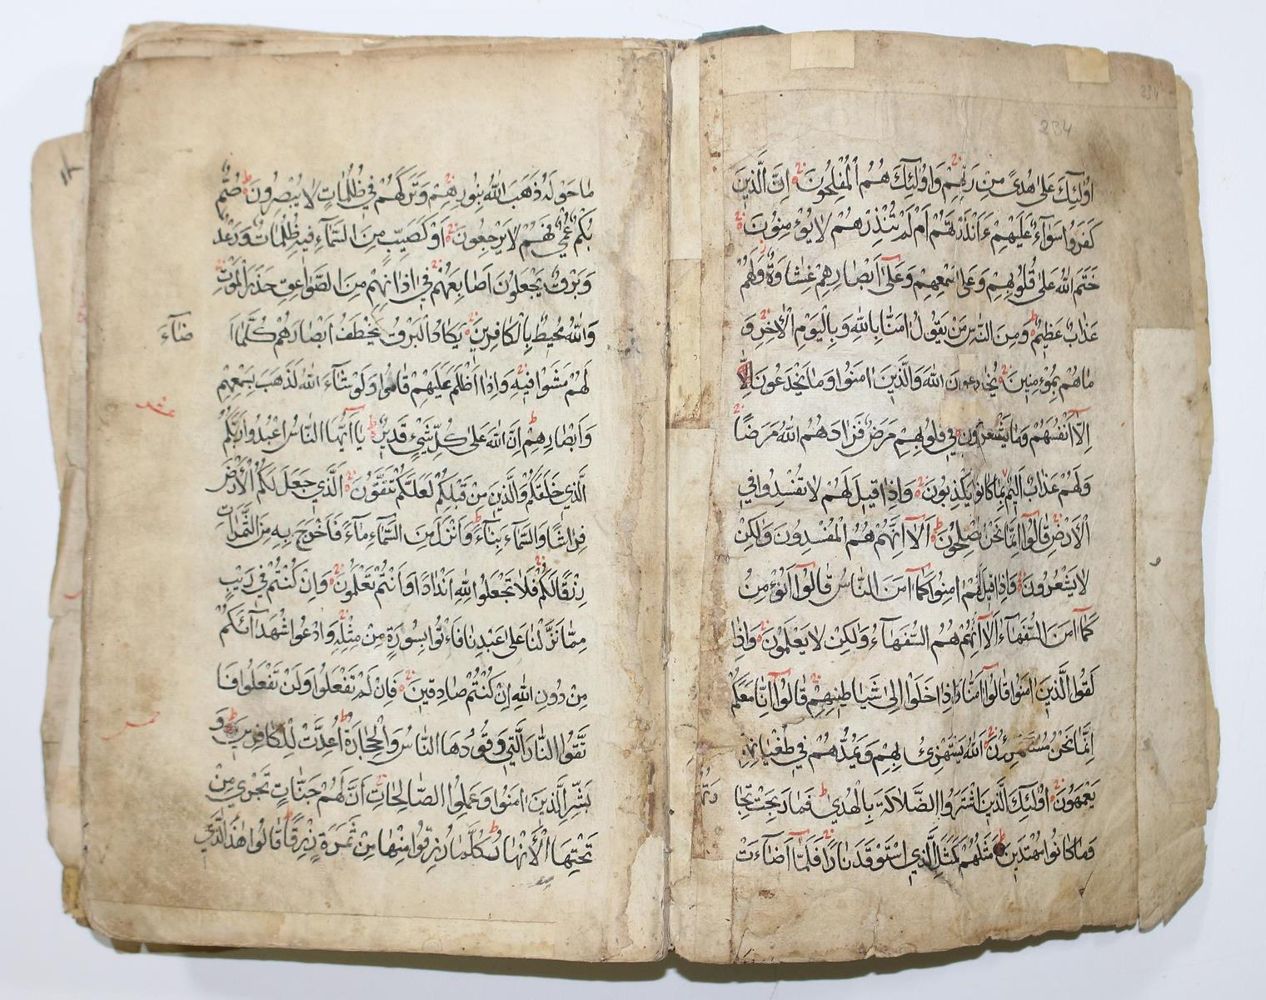 234
234
اُولٰئِكَ عَلىٰ هُدىً مِن رَبِّهِمْ وَاُولٰئِكَ هُمُ الْمُفْلِحُونَ اِنَّ الَّذِينَ
كَفَرُوا سَوَآءٌ عَلَيْهِمْ ءَاَنْذَرْتَهُمْ اَمْ لَمْ تُنْذِرْهُمْ لَا يُؤْمِنُونَ
خَتَمَ اللهُ عَلىٰ قُلُوبِهِمْ وَعَلىٰ سَمْعِهِمْ وَعَلىٰٓ اَبْصَارِهِمْ غِشَاوَةٌ وَلَهُمْ
عَذَابٌ عَظِيمٌ وَمِنَ النَّاسِ مَنْ يَقُولُ اٰمَنَّا بِاللهِ وَبِالْيَوْمِ الْاٰخِرِ وَ
مَا هُمْ بِمُؤْمِنِينَ يُخَادِعُونَ اللهَ وَالَّذِينَ اٰمَنُوا وَمَا يَخْدَعُونَ
اِلَّآ اَنْفُسَهُمْ وَمَا يَشْعُرُونَ فِي قُلُوبِهِمْ مَرَضٌ فَزَادَهُمُ اللهُ مَرَضًا
وَلَهُمْ عَذَابٌ اَلِيمٌ بِمَا كَانُوا يَكْذِبُونَ وَاِذَا قِيلَ لَهُمْ لَا تُفْسِدُوا فِي
الْاَرْضِ قَالُوآ اِنَّمَا نَحْنُ مُصْلِحُونَ اَلَآ اِنَّهُمْ هُمُ الْمُفْسِدُونَ وَلٰكِنْ
لَا يَشْعُرُونَ وَاِذَا قِيلَ لَهُمْ اٰمِنُوا كَمَآ اٰمَنَ النَّاسُ قَالُوآ اَنُؤْمِنُ
كَمَآ اٰمَنَ السُّفَهَآءُ اَلَآ اِنَّهُمْ هُمُ السُّفَهَآءُ وَلٰكِنْ لَا يَعْلَمُونَ وَاِذَا
لَقُوا الَّذِينَ اٰمَنُوا قَالُوآ اٰمَنَّا وَاِذَا خَلَوْا اِلىٰ شَيَاطِينِهِمْ قَالُوآ اِنَّا مَعَكُمْ
اِنَّمَا نَحْنُ مُسْتَهْزِؤُنَ اَللهُ يَسْتَهْزِئُ بِهِمْ وَيَمُدُّهُمْ فِي طُغْيَانِهِمْ
يَعْمَهُونَ اُولٰئِكَ الَّذِينَ اشْتَرَوُا الضَّلَالَةَ بِالْهُدىٰ فَمَا رَبِحَتْ تِجَا
رَتُهُمْ
وَمَا كَانُوا مُهْتَدِينَ مَثَلُهُمْ كَمَثَلِ الَّذِي اسْتَوْقَدَ نَارًا فَلَمَّآ اَضَآءَتْ
مَا حَوْلَهُ ذَهَبَ اللهُ بِنُورِهِمْ وَتَرَكَهُمْ فِي ظُلُمَاتٍ لَا يُبْصِرُونَ صُمٌّ
بُكْمٌ عُمْيٌ فَهُمْ لَا يَرْجِعُونَ اَوْ كَصَيِّبٍ مِنَ السَّمَآءِ فِيهِ ظُلُمَاتٌ وَرَعْدٌ
وَبَرْقٌ يَجْعَلُونَ اَصَابِعَهُمْ فِي اٰذَانِهِمْ مِنَ الصَّوَاعِقِ حَذَرَ الْمَوْتِ
وَاللهُ مُحِيطٌ بِالْكَافِرِينَ يَكَادُ الْبَرْقُ يَخْطَفُ اَبْصَارَهُمْ كُلَّمَآ اَ
ضَآءَ
لَهُمْ مَشَوْا فِيهِ وَاِذَآ اَظْلَمَ عَلَيْهِمْ قَامُوا وَلَوْ شَآءَ اللهُ لَذَهَبَ بِسَمْعِهِمْ
وَاَبْصَارِهِمْ اِنَّ اللهَ عَلىٰ كُلِّ شَيْءٍ قَدِيرٌ يَآ اَيُّهَا النَّاسُ اعْبُدُوا رَبَّكُمُ
الَّذِي خَلَقَكُمْ وَالَّذِينَ مِنْ قَبْلِكُمْ لَعَلَّكُمْ تَتَّقُونَ الَّذِي جَعَلَ لَكُمُ الْاَرْضَ
فِرَاشًا وَالسَّمَآءَ بِنَآءً وَاَنْزَلَ مِنَ السَّمَآءِ مَآءً فَاَخْرَجَ بِهِ مِنَ الثَّمَرَاتِ
رِزْقًا لَكُمْ فَلَا تَجْعَلُوا لِلّٰهِ اَنْدَادًا وَاَنْتُمْ تَعْلَمُونَ وَاِنْ كُنْتُمْ فِي رَيْبٍ
مِمَّا نَزَّلْنَا عَلىٰ عَبْدِنَا فَاْتُوا بِسُورَةٍ مِنْ مِثْلِهِ وَادْعُوا شُهَدَآئَكُمْ
مِنْ دُونِ اللهِ اِنْ كُنْتُمْ صَادِقِينَ فَاِنْ لَمْ تَفْعَلُوا وَلَنْ تَفْعَلُوا فَا
تَّقُوا النَّارَ الَّتِي وَقُودُهَا النَّاسُ وَالْحِجَارَةُ اُعِدَّتْ لِلْكَافِرِينَ وَ
بَشِّرِ الَّذِينَ اٰمَنُوا وَعَمِلُوا الصَّالِحَاتِ اَنَّ لَهُمْ جَنَّاتٍ تَجْرِي مِنْ
تَحْتِهَا الْاَنْهَارُ كُلَّمَا رُزِقُوا مِنْهَا مِنْ ثَمَرَةٍ رِزْقًا قَالُوا هٰذَا الَّذِي